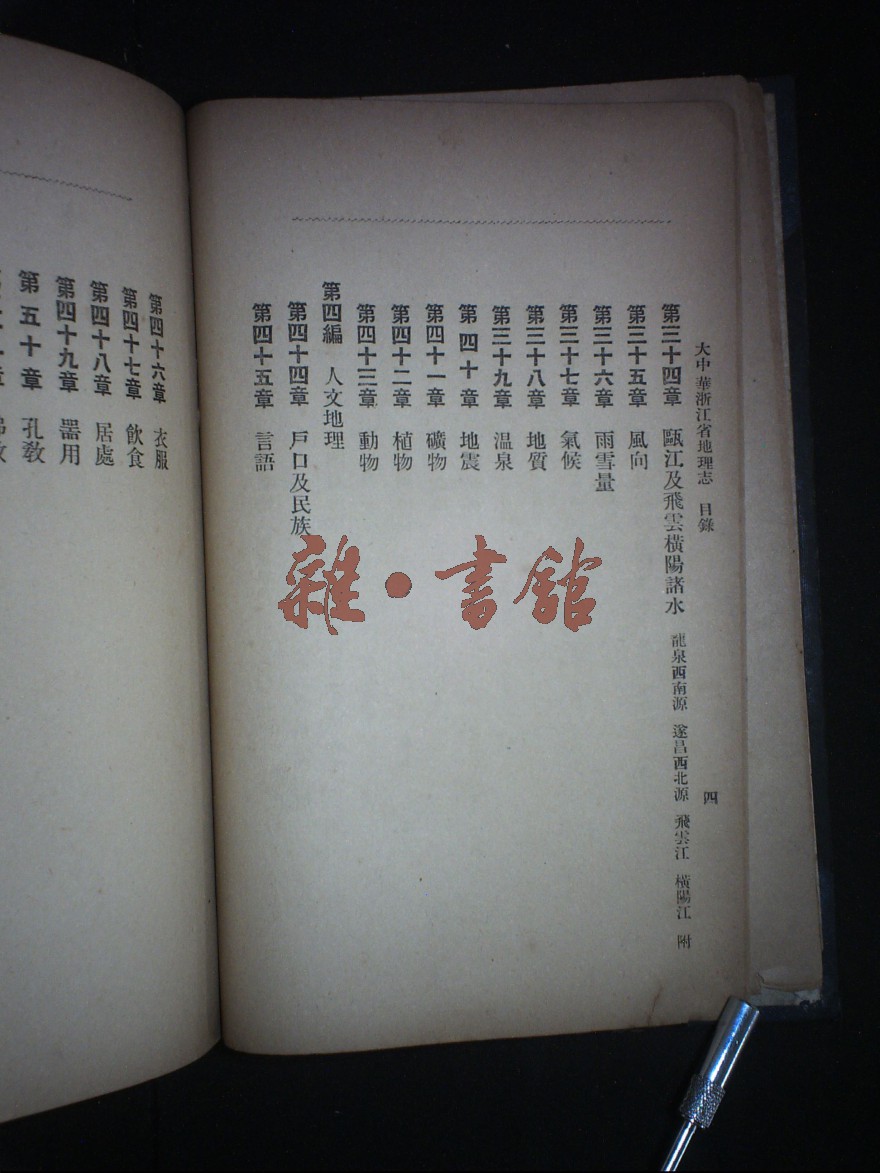 大中華浙江省地理志 目錄 四
第三十四章 甌江及飛雲橫陽諸水 龍泉西南源 遂昌西北源 飛雲江 橫陽江 附
第三十五章 風向
第三十六章 雨雪量
第三十七章 氣候
第三十八章 地質
第三十九章 温泉
第四十章 地震
第四十一章 礦物
第四十二章 植物
第四十三章 動物
第四編 人文地理
第四十四章 戶口及民族
第四十五章 言語
第四十六章 衣服
第四十七章 飲食
第四十八章 居處
第四十九章 器用
第五十章 孔教
雜·書館